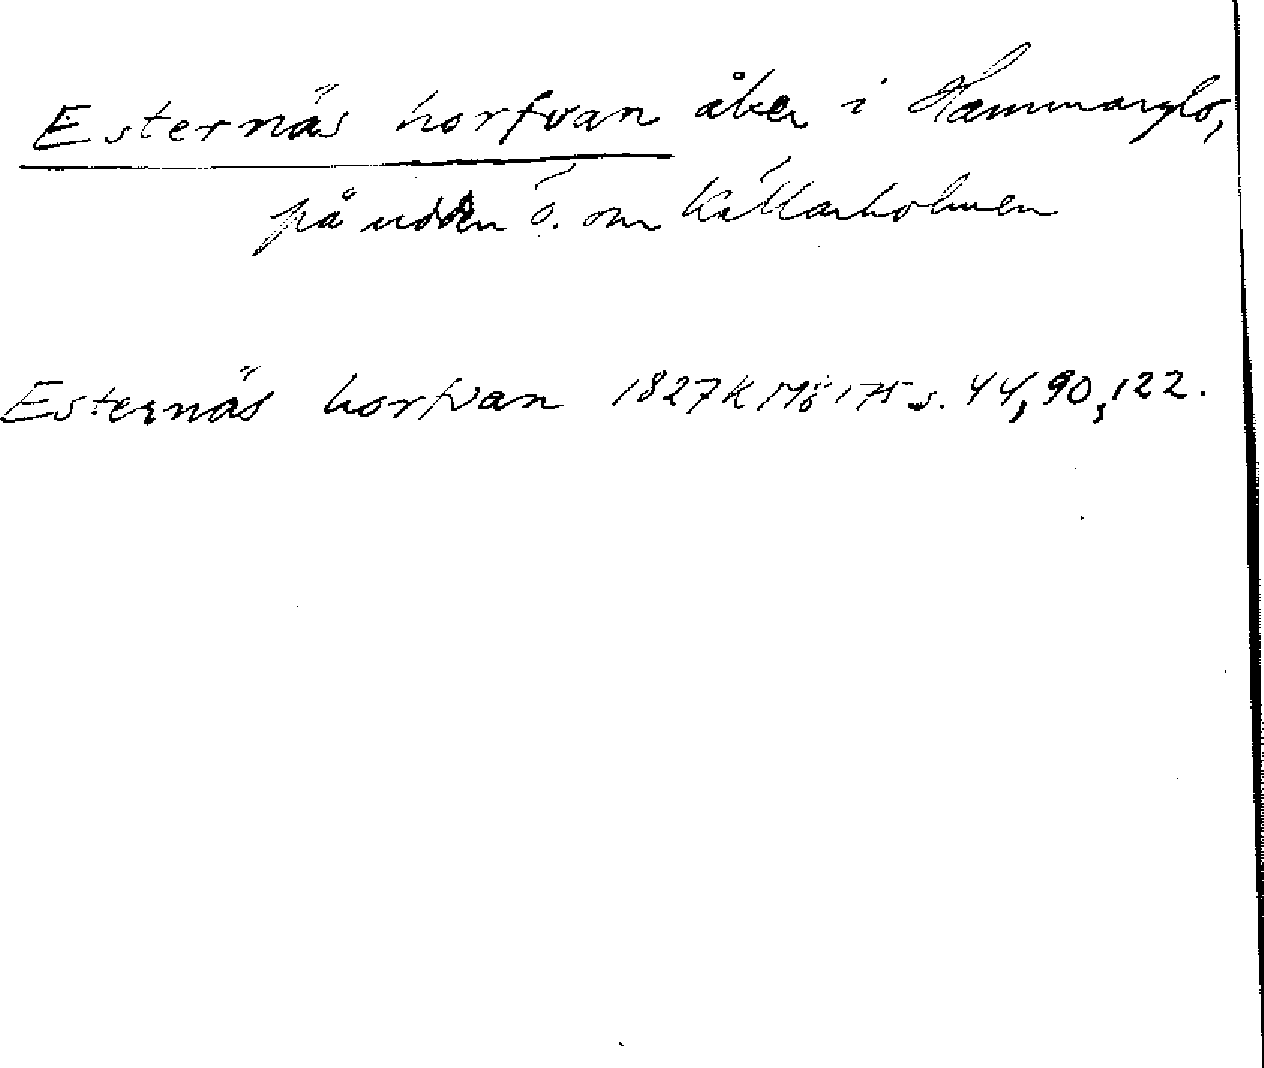 Esternäs horfvan åker i Hammarglo,
på udden ö. om Källarholmen
Esternäs horfvan 1827 K s. 44, 90, 122.